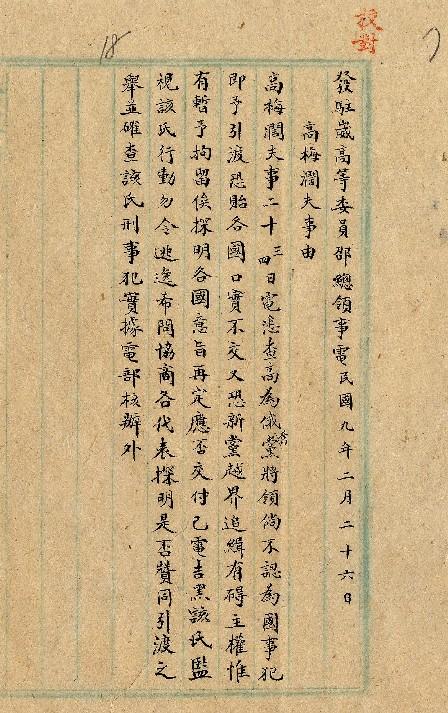 校對
18
發駐崴高等委員邵總領事電民國九年二月二十六日
高梅濶夫事由
高梅濶夫事二十三四日電悉查高為俄舊黨將領倘不認為國事犯
即予引渡恐貽各國口實不交又恐新黨越界追緝有碍主權惟
有暫予拘留俟探明各國意旨再定應否交付已電吉黑該氏監
視該氏行動勿令逃逸希閣協商各代表探明是否贊同引渡之
舉並確查該氏刑事犯實據電部核辦外